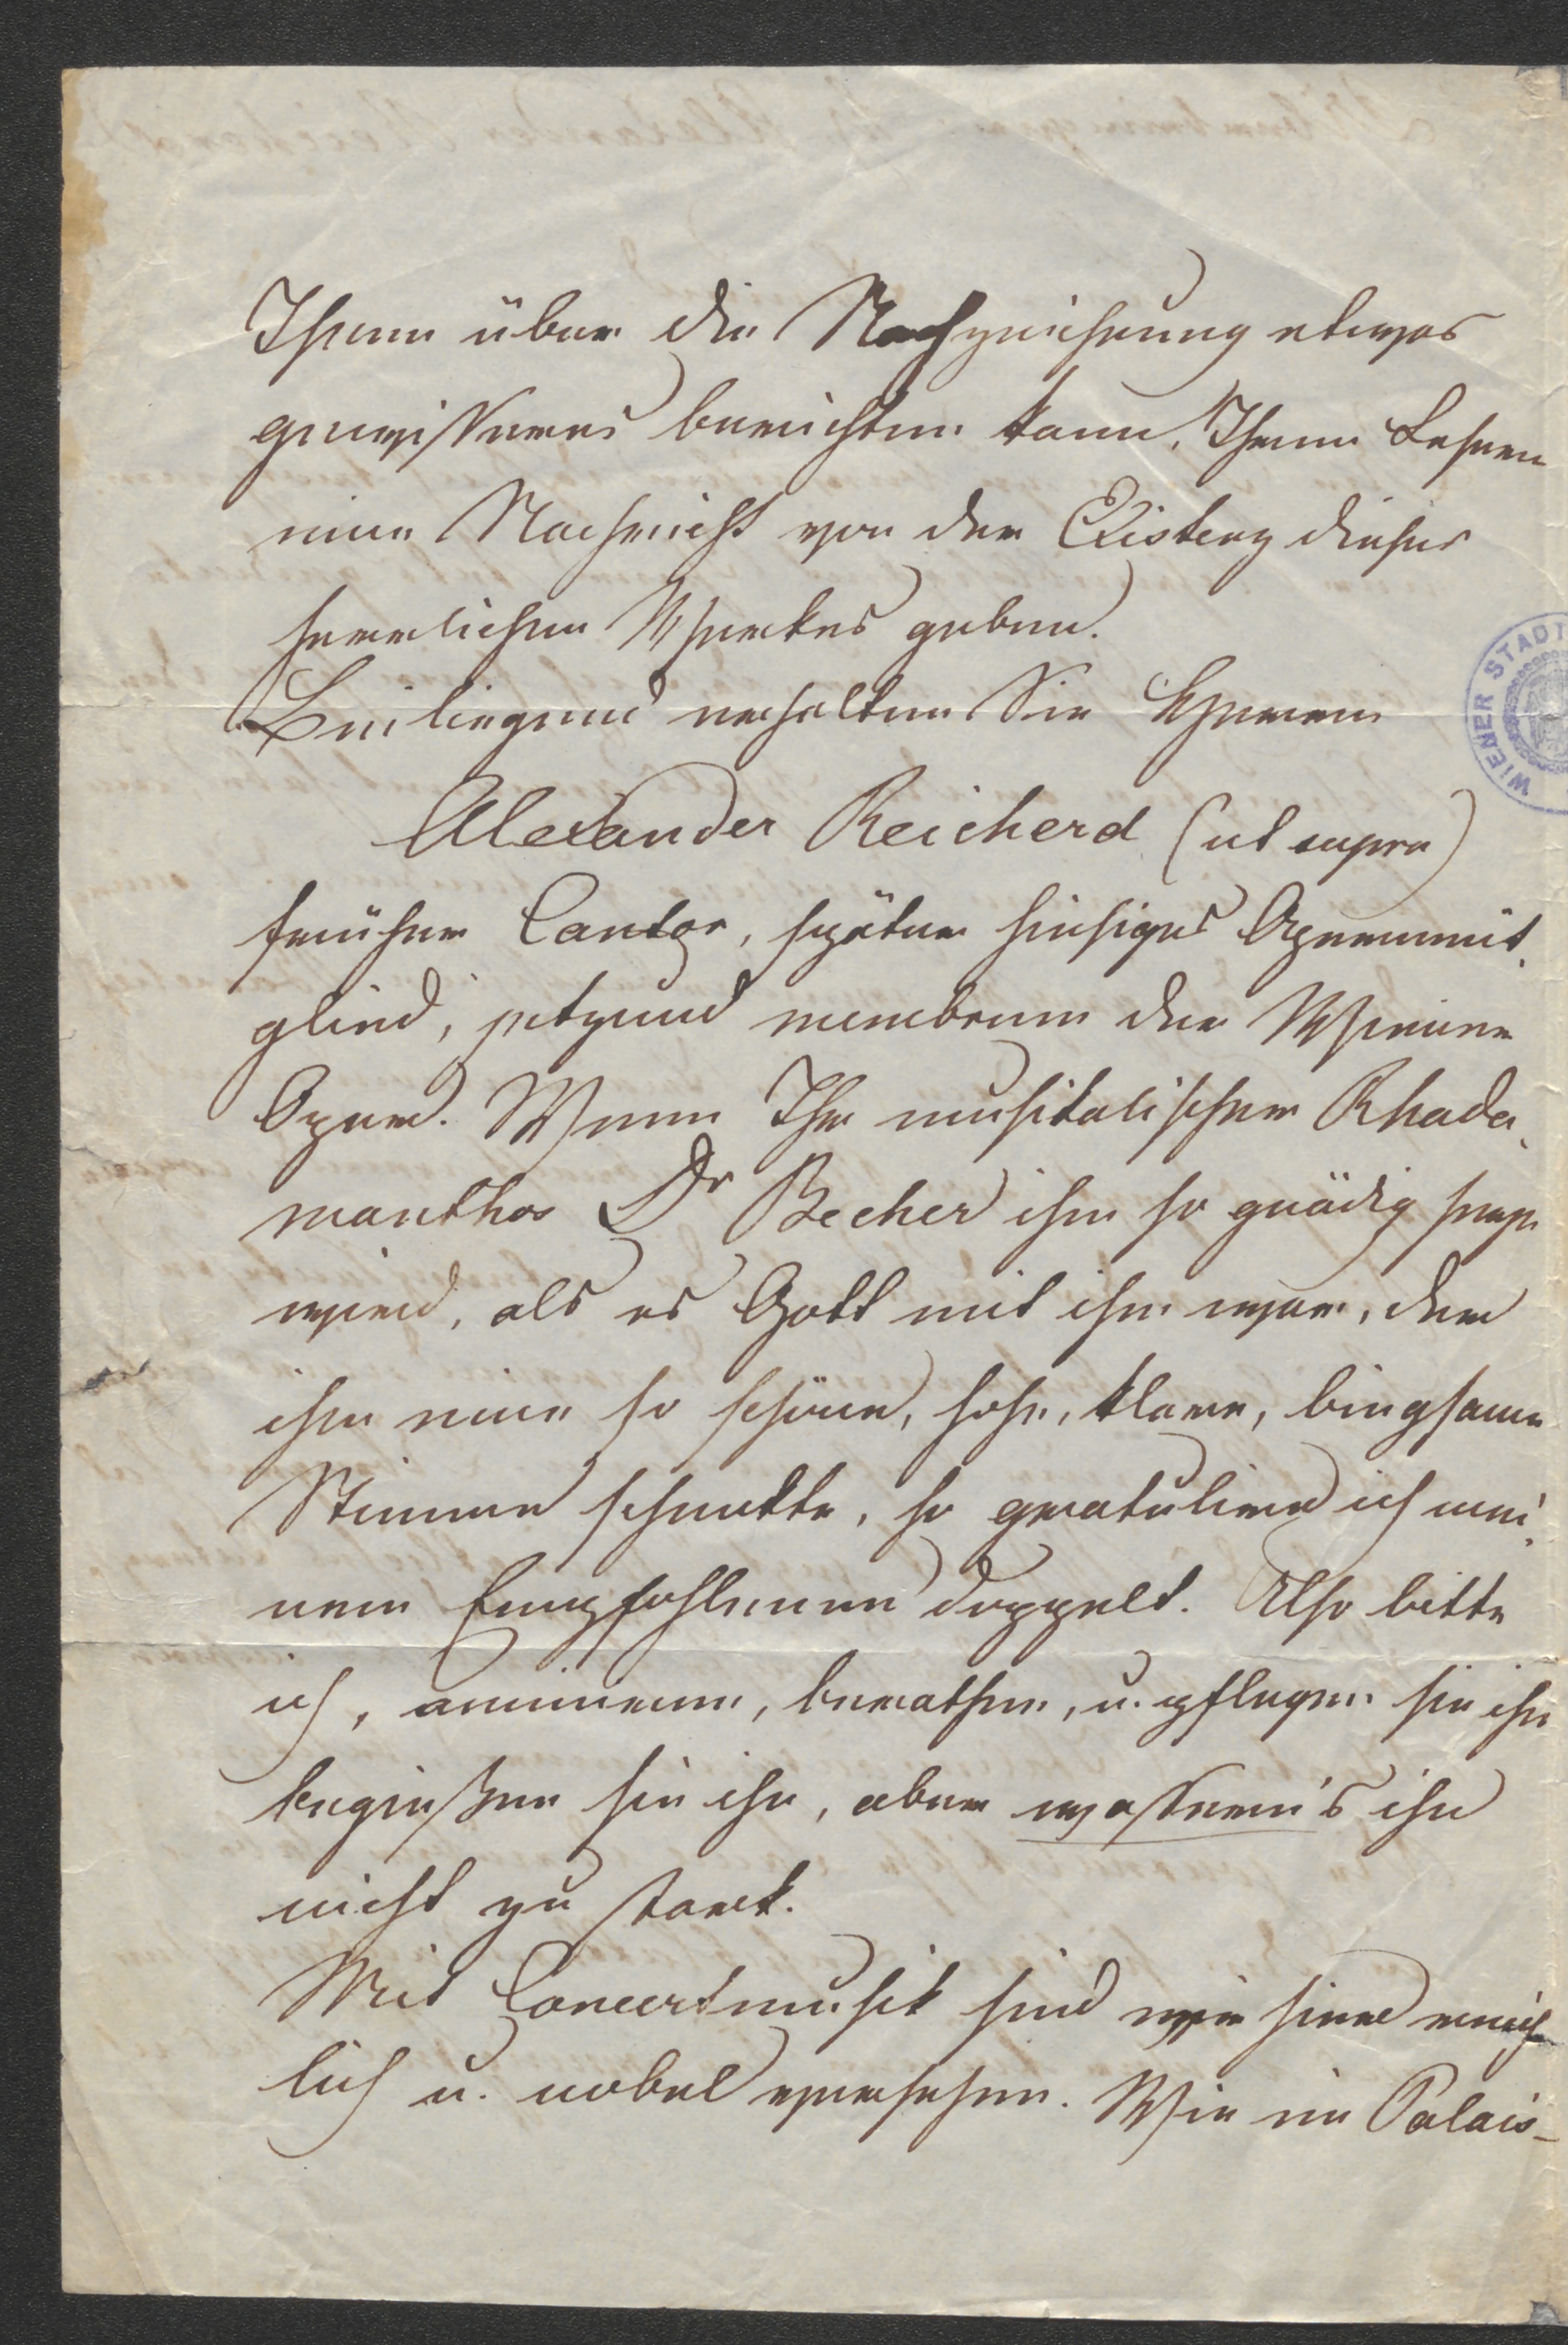 Ihnen über die Nachzeichnung etwas
gewisseres berichten kann, Ihnen
eine Nachricht von der Existenz dieses
herrlichen Werkes geben.
Beiliegend erhalten Sie Herrn
Alexander Reicherd (ut supra)
früher Cantor, später hiesiges Opernmit,
glied, jetzund membrum der Wiener
Oper. Wenn Ihr musikalischer Rhada,
manthos Dr Becher ihm so gnädig seyn
wird, als es Gott mit ihm war, der
ihm eine so schöne, hohe, klare, biegsame
Stimme schenkte, so gratulire ich mei,
nem Empfohlenen doppelt. Also bitte
ich, animiren, berathen, u. pflegen sie ihn
begießen sie ihn, aber wassern's ihn
nicht zu stark.
Mit Concertmusik sind wir hier reich
lich u. nobel versehen. Wie im Palais-
WIENER STADT